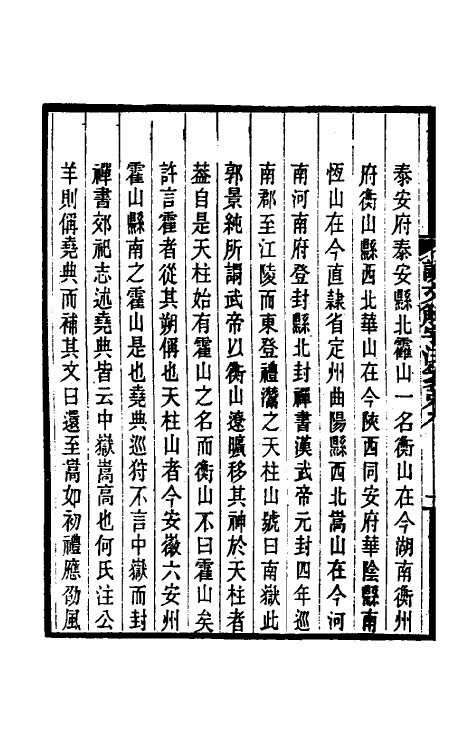 泰安府泰安縣北霍山一名衡山在今湖南衡州
府衡山縣西北華山在今陝西同安府華陰縣南
恆山在今直隷省定州曲陽縣西北嵩山在今河
南河南府登封縣北封禪書漢武帝元封四年巡
南郡至江陵而東登禮灊之天柱山號曰南嶽此
郭景純所謂武帝以衡山遼曠移其神於天柱者
葢自是天柱始有霍山之名而衡山不曰霍山矣
許言霍者從其朔偁也天柱山者今安徽六安州
霍山縣南之霍山是也堯典巡狩不言中嶽而封
禪書郊祀志述堯典皆云中嶽嵩高也何氏注公
羊則偁堯典而補其文曰還至嵩如初禮應劭風